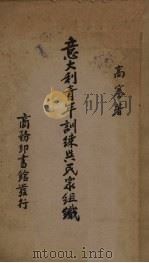 高塞著
意大利青年訓練與民衆組織
商務印書館發行